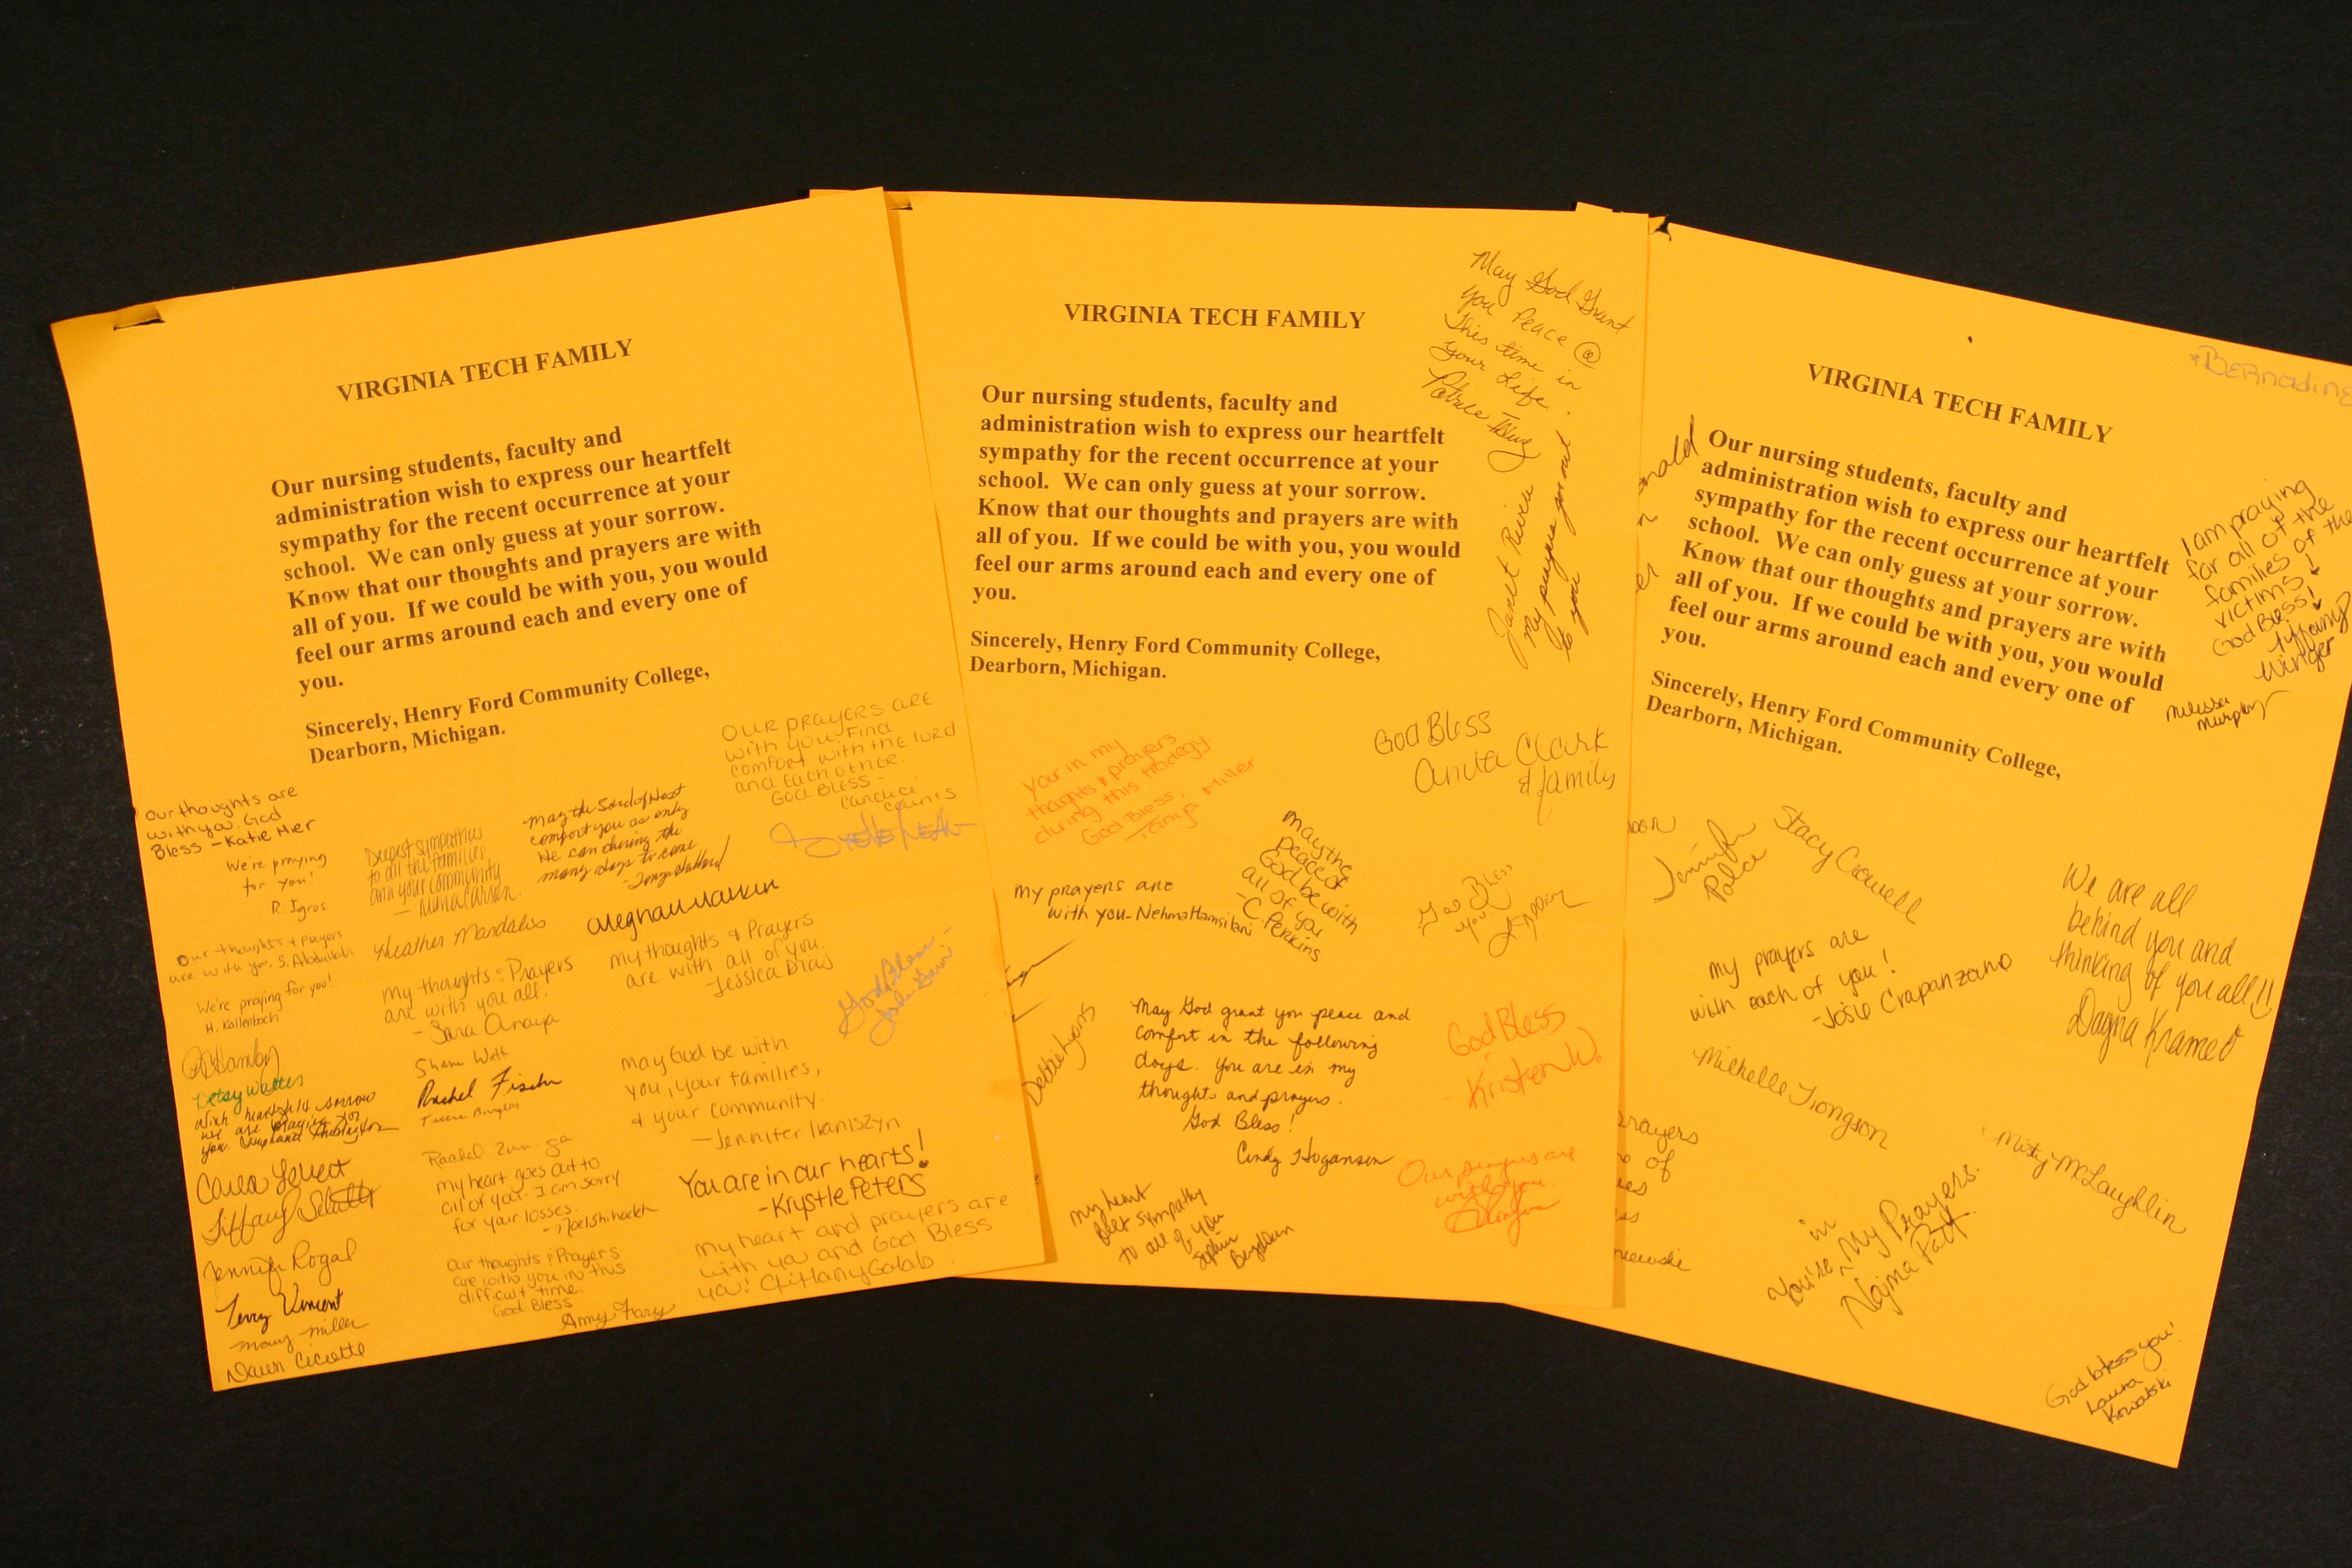 VIRGINIA TECH FAMILY
Our nursing students, faculty and
administration wish to express our heartfelt
sympathy for the recent occurrence at your
school. We can only guess at your sorrow.
Know that our thoughts and prayers are with
all of you. If we could be with you, you would
feel our arms around each and every one of
you.
Sincerely, Henry Ford Community College,
Dearborn, Michigan.
OUR PRAYERS ARE
with you. Find
comfort with the LORD
and Each other.
God Bless -
Candice
Our thoughts are
with you. God
Bless - Katie
We're praying
for you!
R. Igros
Deepest sympathies
to all the families
and your community
comfort you as only
He can during the
many days to come
Heather Mandalis
Our thoughts + Prayers
are with you. S. Abdullah
We're praying for you!
H. Kallenbach
My thoughts & Prayers
are with you all.
- Sara Anaya
My thoughts & Prayers
are with all of you.
Jessica Dias
God Bless -
Betsy Walters
With heartfelt sorrow
we are praying for
you.
Rachel Fischer
May God be with
you, your families,
& your community.
- Jennifer Iraniszyn
Tiffany
Jennifer Rogal
Terry Vincent
Mary Miller
Dawn Ciciotte
Rachel Zuniga
My heart goes out to
all of you. I am sorry
for your losses.
Our thoughts & Prayers
are with you in this
difficult time.
God Bless
Amy Frary
You are in our hearts!
- Krystle Peters
My heart and prayers are
with you and God Bless
you! Golab
VIRGINIA TECH FAMILY
Our nursing students, faculty and
administration wish to express our heartfelt
sympathy for the recent occurrence at your
school. We can only guess at your sorrow.
Know that our thoughts and prayers are with
all of you. If we could be with you, you would
feel our arms around each and every one of
you.
Sincerely, Henry Ford Community College,
Dearborn, Michigan.
May God Grant
you Peace @
This time in
your Life.
Patrice
Janet Rivera
My prayers go out
to you
Your in my
thoughts & prayers
during this tradegy.
God Bless,
Tanya Miller
God Bless
Anita Clark
& family
My prayers are
with you -
may the
peace of
God be with
all of you
- C. Perkins
God Bless
You.
Debbie Lyons
May God grant you peace and
comfort in the following
days. You are in my
thoughts and prayers.
God Bless!
Cindy Hogansen
God Bless
- Kristen W.
Our prayers are
with you
My heart
felt sympathy
to all of you
VIRGINIA TECH FAMILY
Our nursing students, faculty and
administration wish to express our heartfelt
sympathy for the recent occurrence at your
school. We can only guess at your sorrow.
Know that our thoughts and prayers are with
all of you. If we could be with you, you would
feel our arms around each and every one of
you.
Sincerely, Henry Ford Community College,
Dearborn, Michigan.
*Bernadine
I am praying
for all of the
families of the
victims
God Bless!
Tiffany
Winger
Melissa
Murphy
Jennifer
Polce
Stacy Crowell
My prayers are
with each of you!
- Josie Crapanzano
We are all
behind you and
thinking of you all!!
Dagna Kramer
Michelle Tiongson
Misty McLaughlin
prayers
of
You're in My Prayers.
Najma
God bless you!
Laura
Kowalski